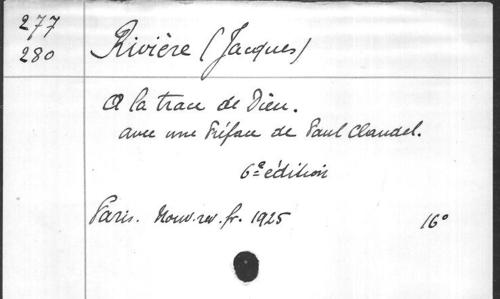 277
280
Rivière (Jacques)
A la trace de Dieu.
avec une Préface de Paul Claudel.
6e édition
Paris. Nouv. rev. fr. 1925 16°